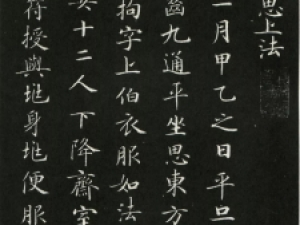 思上法
月甲乙之日平旦
齒九通平坐思東方
拘字上伯衣服如法
十二人下降齋室
符授與垗身垗便服